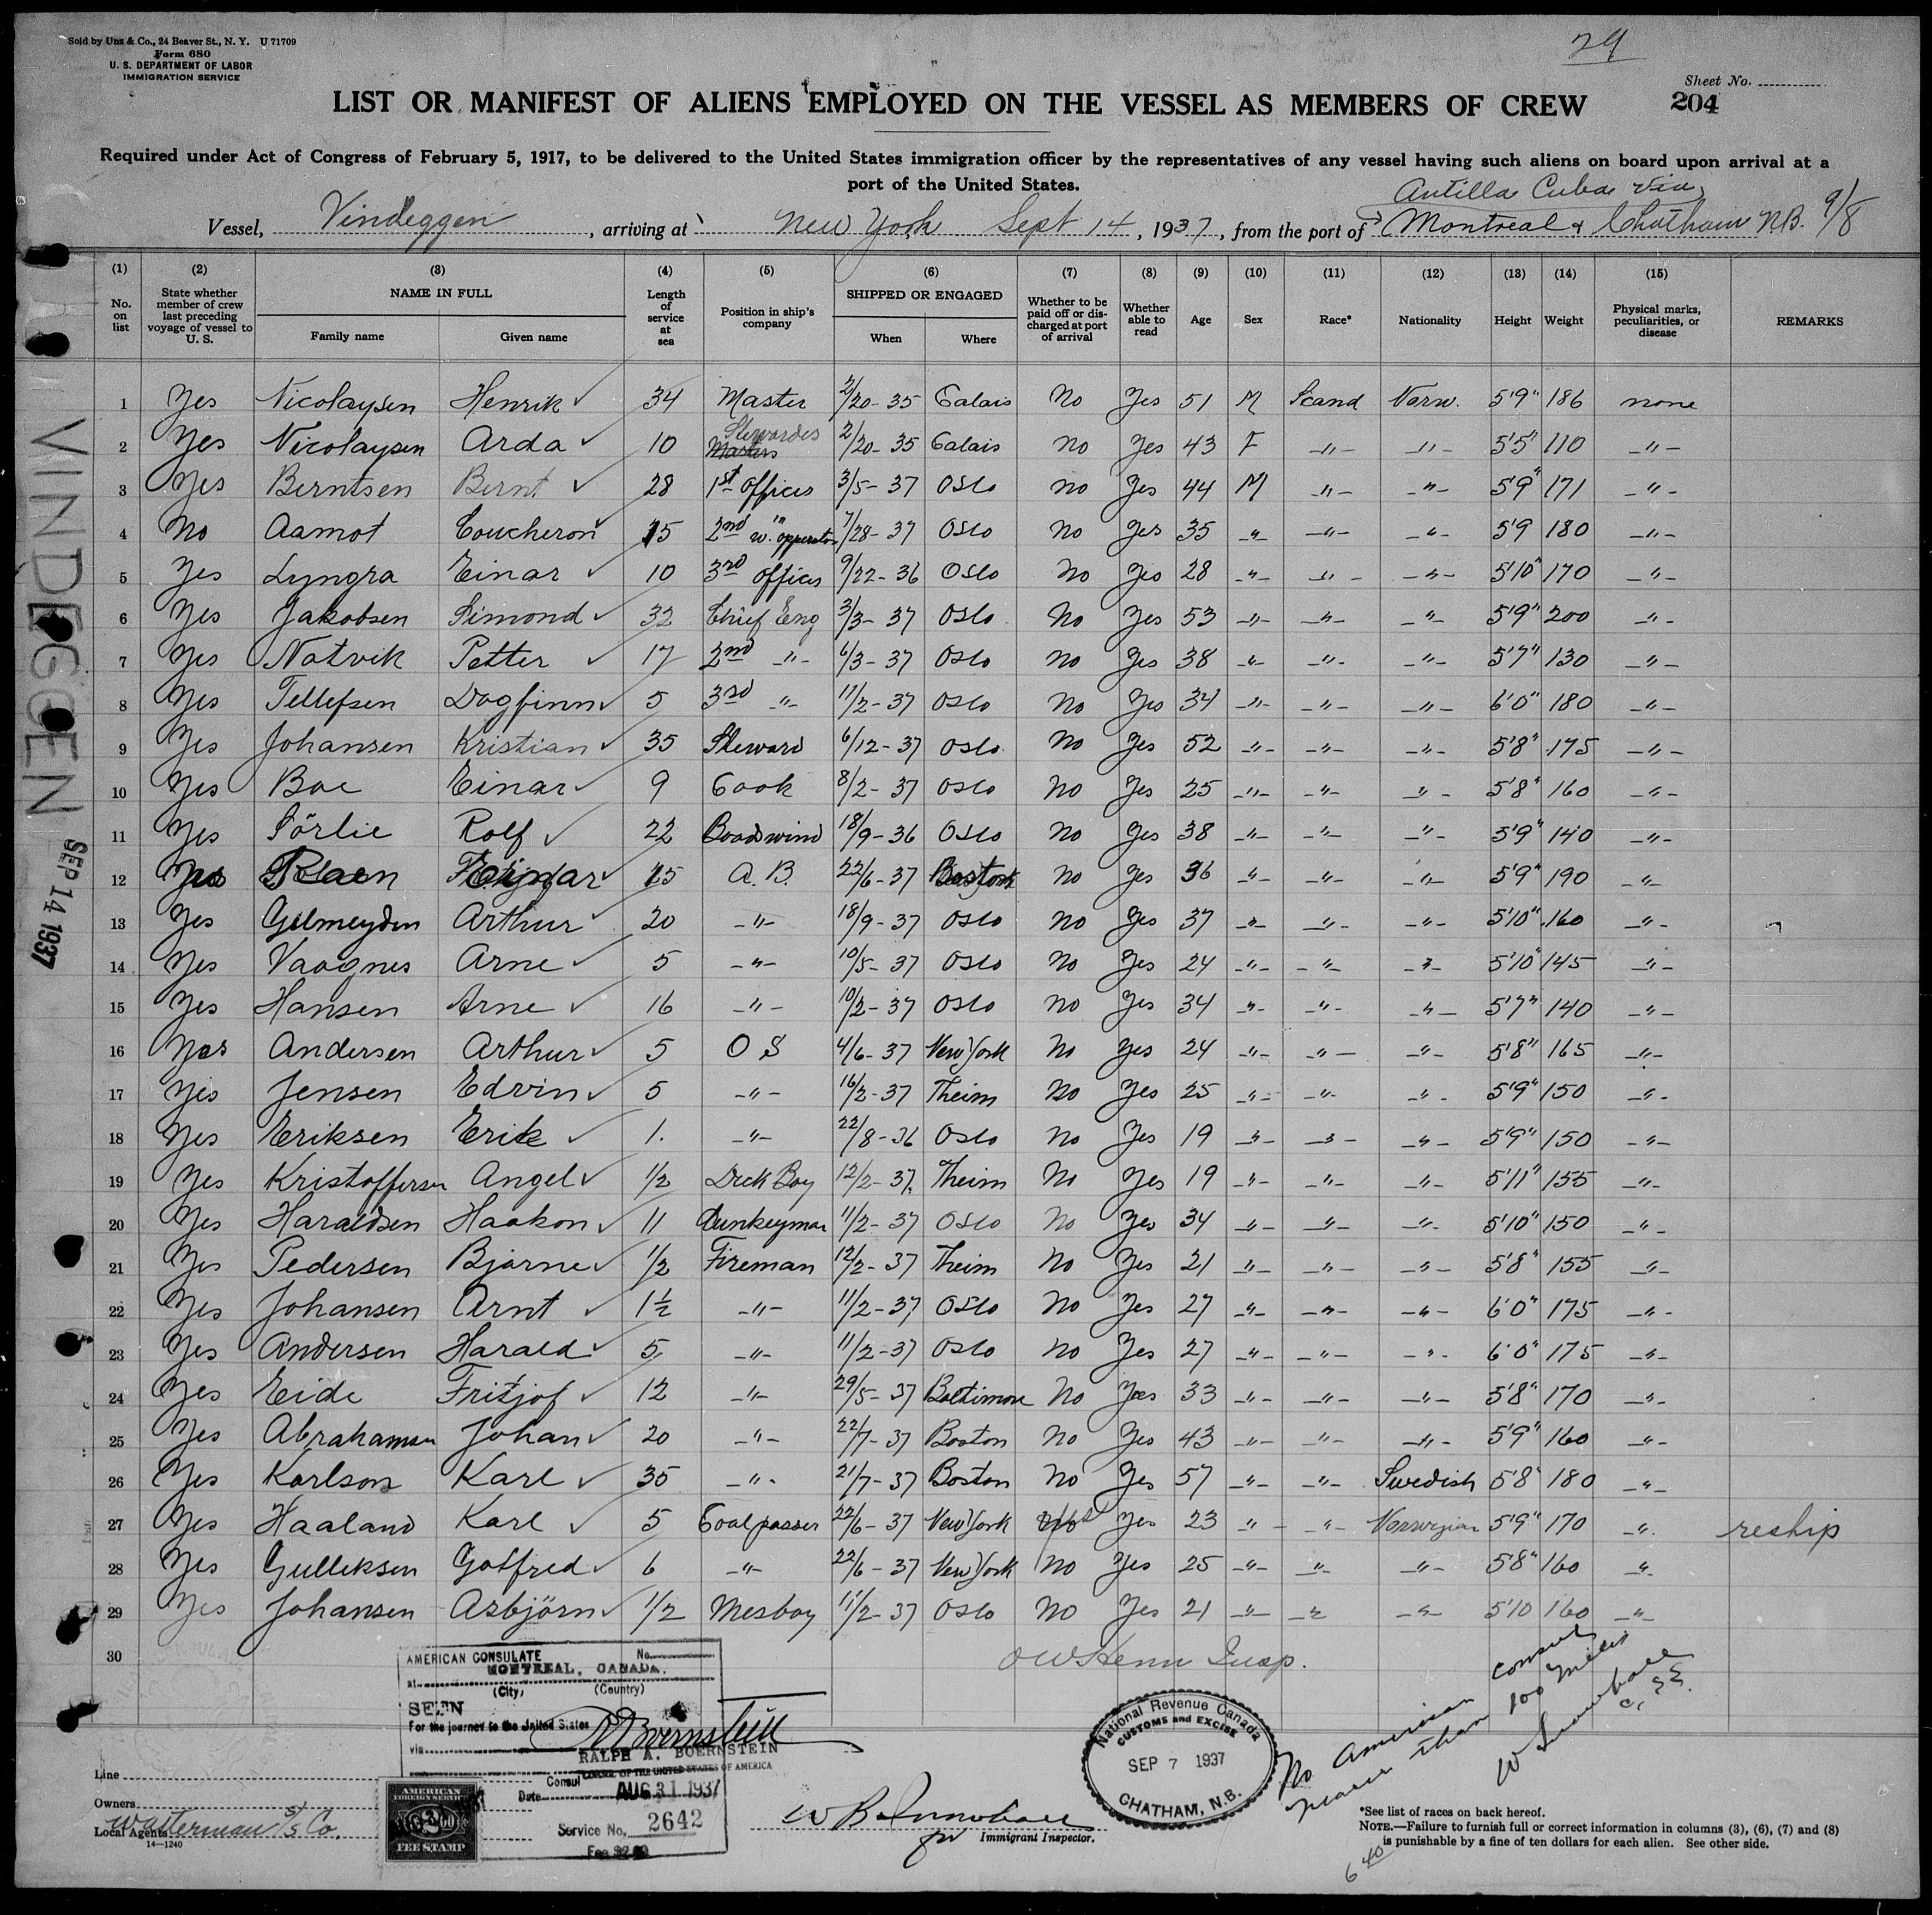 Sold by Unz & Co., 24 Beaver St., N. Y. U 71709
Form 680
U. S. DEPARTMENT OF LABOR
IMMIGRATION SERVICE
29
Sheet No.
204
LIST OR MANIFEST OF ALIENS EMPLOYED ON THE VESSEL AS MEMBERS OF CREW
Required under Act of Congress of February 5, 1917, to be delivered to the United States immigration officer by the representatives of any vessel having such aliens on board upon arrival at a
port of the United States.
Antilla Cuba via
Vessel, Vindeggen, arriving at New York Sept 14, 1937, from the port of Montreal & Chatham N.B. 9/8
(1) (2) (3) (4) (5) (6) (7) (8) (9) (10) (11) (12) (13) (14) (15)
No. on list
State whether member of crew last preceding voyage of vessel to U. S.
NAME IN FULL
Family name Given name
Length of service at sea
Position in ship's company
SHIPPED OR ENGAGED
When Where
Whether to be paid off or discharged at port of arrival
Whether able to read
Age Sex Race* Nationality Height Weight
Physical marks, peculiarities, or disease
REMARKS
1 Yes Nicolaysen Henrik 34 Master 2/20-35 Calais No Yes 51 M Scand Norw. 5'9" 186 none
2 Yes Nicolaysen Arda 10 Stewardes 2/20-35 Calais No Yes 43 F -"- -"- 5'5" 110 -"-
3 Yes Berntsen Bernt 28 1st Officer 3/5-37 Oslo No Yes 44 M -"- -"- 5'9" 171 -"-
4 No Aamot Coucheron 15 2nd " w. opperator 7/28-37 Oslo No Yes 35 -"- -"- -"- 5'9 180 -"-
5 Yes Lyngra Einar 10 3rd Officer 9/22-36 Oslo No Yes 28 -"- -"- -"- 5'10" 170 -"-
6 Yes Jakobsen Simond 32 Chief Eng 3/3-37 Oslo No Yes 53 -"- -"- -"- 5'9" 200 -"-
7 Yes Natvik Petter 17 2nd -"- 6/3-37 Oslo No Yes 38 -"- -"- -"- 5'7" 130 -"-
8 Yes Tellefsen Dagfinn 5 3rd -"- 11/2-37 Oslo No Yes 34 -"- -"- -"- 6'0" 180 -"-
9 Yes Johansen Kristian 35 Steward 6/12-37 Oslo No Yes 52 -"- -"- -"- 5'8" 175 -"-
10 Yes Boe Einar 9 Cook 8/2-37 Oslo No Yes 25 -"- -"- -"- 5'8" 160 -"-
11 Yes Sörlie Rolf 22 Boadswind 18/9-36 Oslo No Yes 38 -"- -"- -"- 5'9" 140 -"-
12 A. B. 22/6-37 No Yes 36 -"- -"- -"- 5'9" 190 -"-
13 Yes Gulmeyden Arthur 20 -"- 18/9-37 Oslo No Yes 37 -"- -"- -"- 5'10" 160 -"-
14 Yes Vaagnes Arne 5 -"- 10/5-37 Oslo No Yes 24 -"- -"- -"- 5'10" 145 -"-
15 Yes Hansen Arne 16 -"- 10/2-37 Oslo No Yes 34 -"- -"- -"- 5'7" 140 -"-
16 Yes Andersen Arthur 5 O S 4/6-37 New York No Yes 24 -"- -"- -"- 5'8" 165 -"-
17 Yes Jensen Edvin 5 -"- 16/2-37 Theim No Yes 25 -"- -"- -"- 5'9" 150 -"-
18 Yes Eriksen Erik 1. -"- 22/8-36 Oslo No Yes 19 -"- -"- -"- 5'9" 150 -"-
19 Yes Kristoffersen Angel 1/2 Deck Boy 12/2-37 Theim No Yes 19 -"- -"- -"- 5'11" 155 -"-
20 Yes Haraldsen Haakon 11 Dunkeyman 11/2-37 Oslo No Yes 34 -"- -"- -"- 5'10" 150 -"-
21 Yes Pedersen Bjarne 1/2 Fireman 12/2-37 Theim No Yes 21 -"- -"- -"- 5'8" 155 -"-
22 Yes Johansen Arnt 1 1/2 -"- 11/2-37 Oslo No Yes 27 -"- -"- -"- 6'0" 175 -"-
23 Yes Andersen Harald 5 -"- 11/2-37 Oslo No Yes 27 -"- -"- -"- 6'0" 175 -"-
24 Yes Eide Fritjof 12 -"- 29/5-37 Baltimore No Yes 33 -"- -"- -"- 5'8" 170 -"-
25 Yes Abrahamsen Johan 20 -"- 22/7-37 Boston No Yes 43 -"- -"- -"- 5'9" 160 -"-
26 Yes Karlson Karl 35 -"- 21/7-37 Boston No Yes 57 -"- -"- Swedish 5'8" 180 -"-
27 Yes Haaland Karl 5 Coalpasser 22/6-37 New York Yes 23 -"- -"- Norwegian 5'9" 170 -"- reship
28 Yes Gulleksen Gotfred 6 -"- 22/6-37 New York No Yes 25 -"- -"- -"- 5'8" 160 -"-
29 Yes Johansen Asbjörn 1/2 Mesboy 11/2-37 Oslo No Yes 21 -"- -"- -"- 5'10 160 -"-
30
VINDEGGEN
SEP 14 1937
AMERICAN CONSULATE No.
at MONTREAL, CANADA.
(City) (Country)
SEEN
For the journey to the United States
via
RALPH A. BOERNSTEIN
Consul CONSUL OF THE UNITED STATES OF AMERICA
Date AUG 31 1937
Service No. 2642
AMERICAN
FOREIGN SERVICE
FEE STAMP
National Revenue Canada
CUSTOMS and EXCISE
SEP 7 1937
CHATHAM, N.B.
No American Consul
nearer than 100 miles
Line
Owners
Local Agents Watterman S/S Co.
14—1240
Immigrant Inspector.
*See list of races on back hereof.
NOTE.—Failure to furnish full or correct information in columns (3), (6), (7) and (8)
is punishable by a fine of ten dollars for each alien. See other side.
640